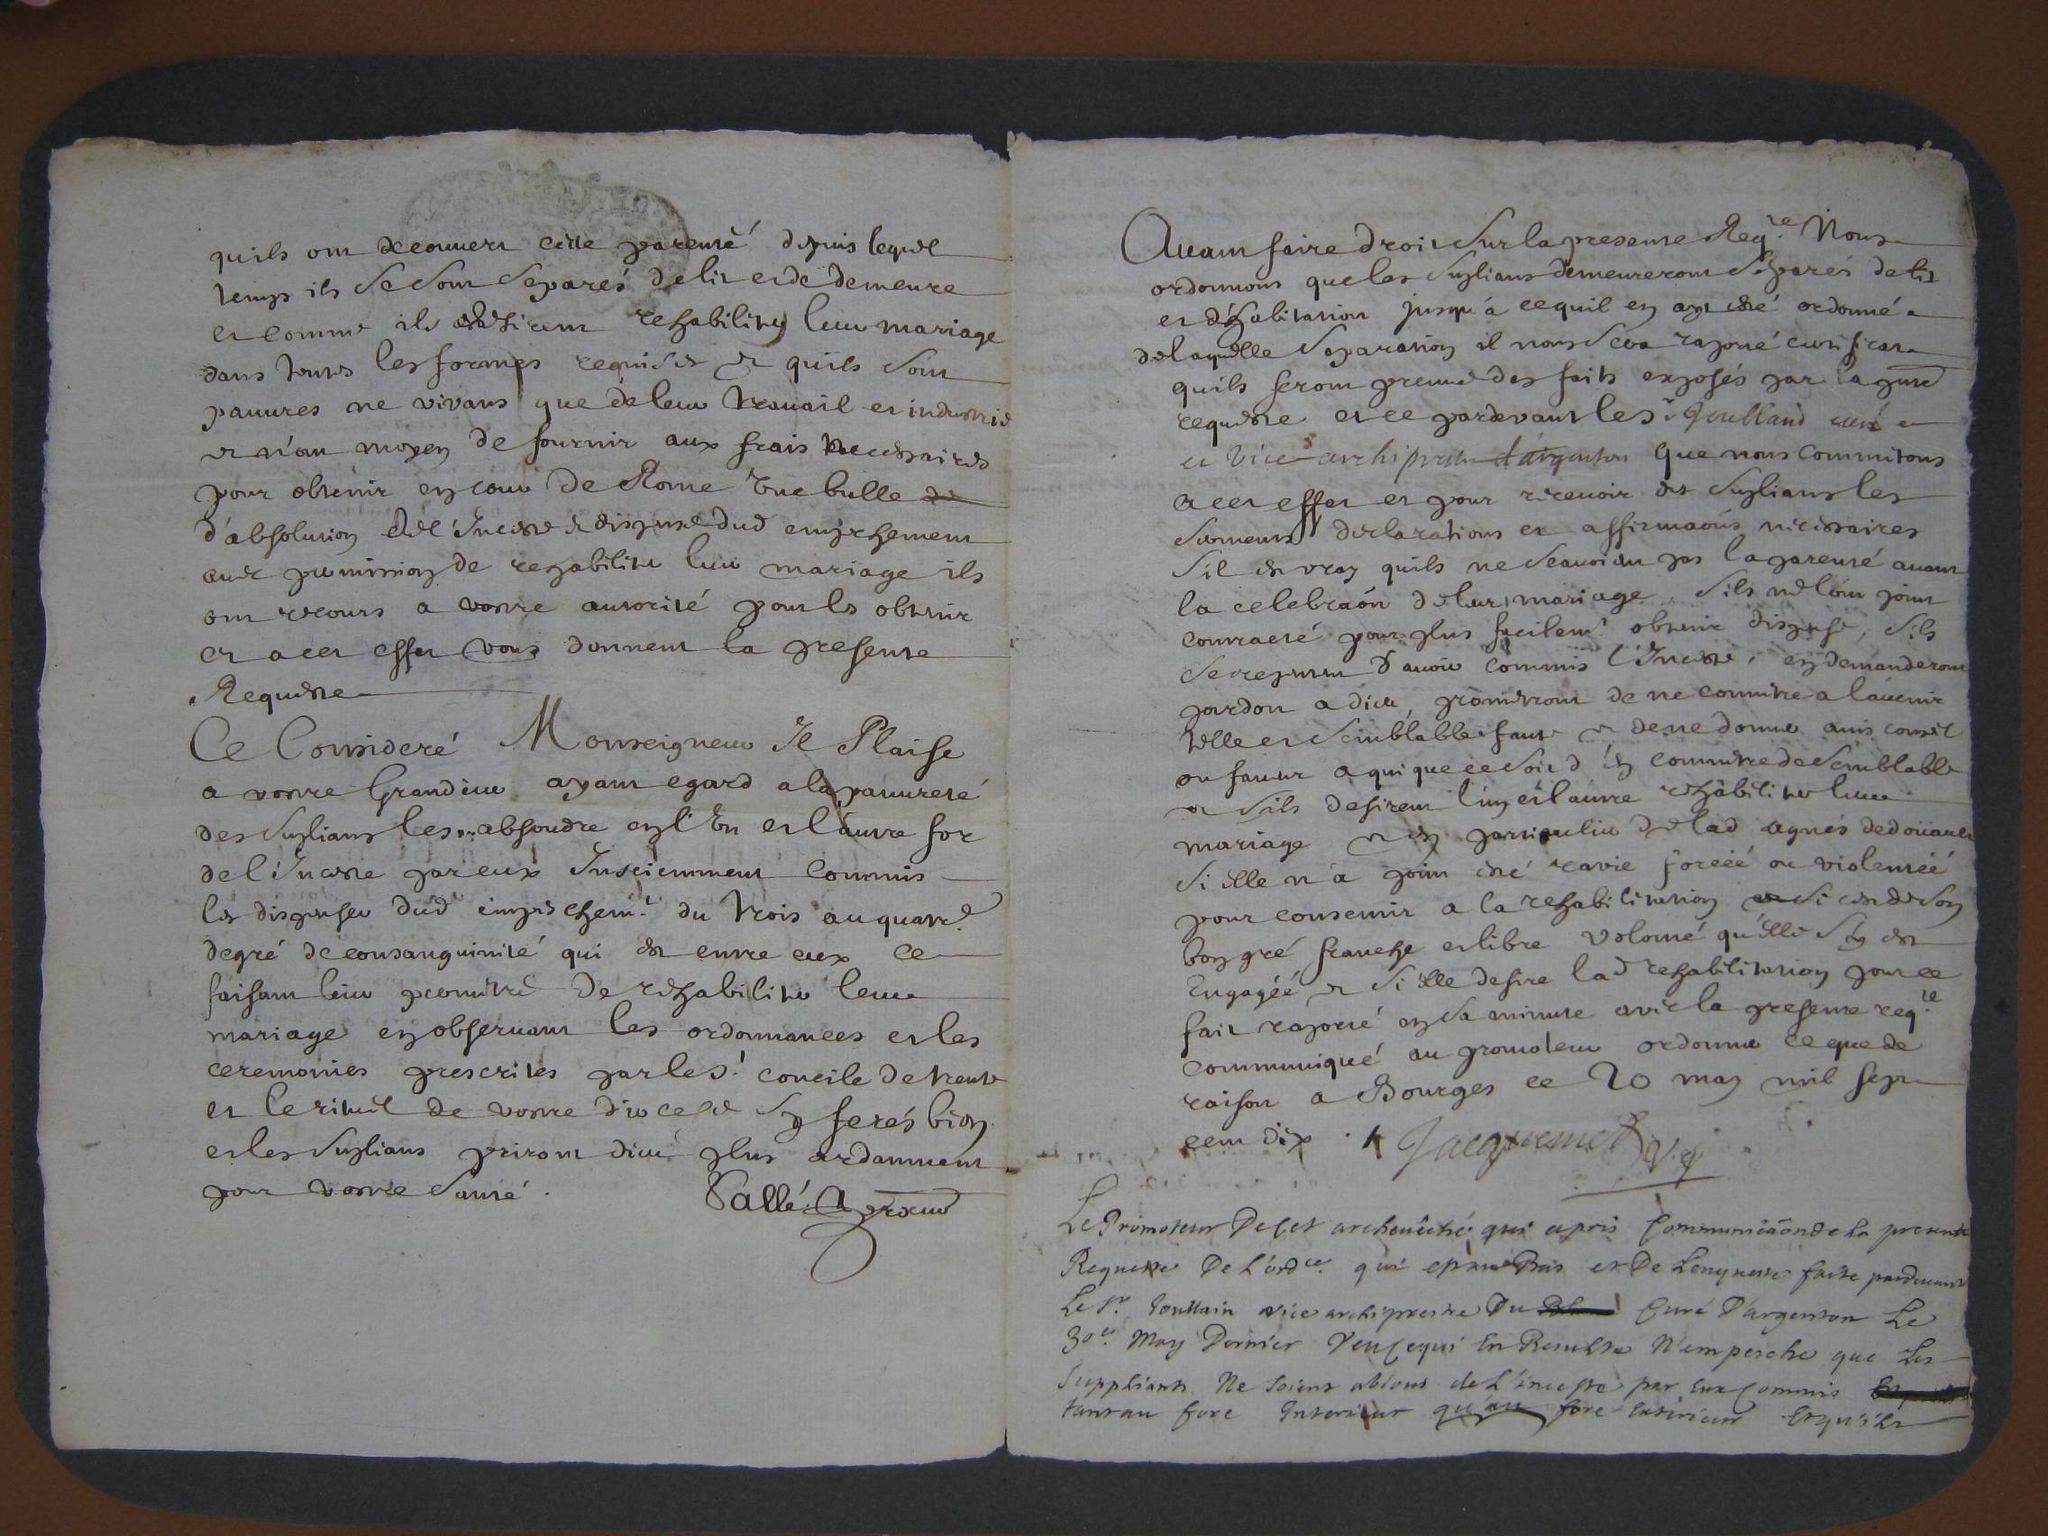 quils ont decouvert cette parenté depuis lequel
temps ils se sont separés de lit et de demeure
et comme ils desirent rehabiliter leur mariage
dans toutes les formes requises et quils sont
pauures ne vivans que de leur trauail et industrie
et n'ont moyen de fournir aux frais necessaires
pour obtenir en cour de Rome une bulle de
d'absolution de l'Inceste et dispense dud empeschement
auec permission de rehabiliter leur mariage ils
ont recours a vostre autorité pour les obtenir
et a cet effet vous donnent la presente
Requeste
Ce Consideré Monseigneur Il Plaise
a vostre Grandeur ayant egard a la pauureté
des suplians les absoudre en l'un et l'autre for
de l'Inceste par eux Insciemment commis
les dispenser dud empeschemt. du trois au quatre
degré de consanguinité qui est entre eux ce
faisant leur permettre de rehabiliter leur
mariage en obseruant les ordonnances et les
ceremonies prescrites par le St. concile de trente
et le rituel de vostre diocese sy ferés bien
et les suplians priront dieu plus ardamment
pour vostre santé. Vallé
Auant faire droit sur la presente Reqte. Nous
ordonnons que les suplians demeureront separés de lit
et d'habitation jusqu'à ce quil en ayt esté ordonné
de laquelle separation il nous sera raporté certificat
quils feront preuue des faits exposés par la pnte
requeste et ce pardevant le Sr. Goubland curé
et vice archiprestre d'argenton que nous commitons
a cet effet et pour receuoir des suplians les
serments declarations et affirmaons necessaires
s'il est vray quils ne scauoient pas la parenté auant
la celebraon de leur mariage, s'ils ne l'ont point
contracté pour plus facilemt. obtenir dispense, s'ils
se repentent d'auoir commis l'Inceste, en demanderont
pardon a dieu, promettront de ne commettre a l'auenir
telle et semblable faute et de ne donner auis conseil
ou faueur a qui que ce soit d'en commettre de semblable
et s'ils desirent l'un et l'autre rehabiliter leur
mariage et en particulier de lad agnés dedouaux
si elle n'a point esté rauie forcéé ou violentéé
pour consentir a la rehabilitation et si cest de son
bon gré franche et libre volonté qu'elle sy est
Engagéé et si elle desire lad rehabilitation pour ce
fait raporté en sa minute avec la presente reqte.
communiqué au promoteur ordonner ce que de
raison a Bourges ce 20 may mil sept
cent dix. Jacquemet v.g
Le Promoteur De Cet archeuêché qui a pris Communicaon de la presente
Requeste De L'ordce. qui est au Bas et De Lenqueste faite pardeuant
Le Sr. Goullain vice archiprestre Du Curé D'argenton Le
30e. May Dernier Veu Ce qui En Resulte N'empesche que Les
Suppliants Ne soient absous de L'inceste par Eux Commis
tant au fore Interieur qu'au fore Exterieur Et qu'ils